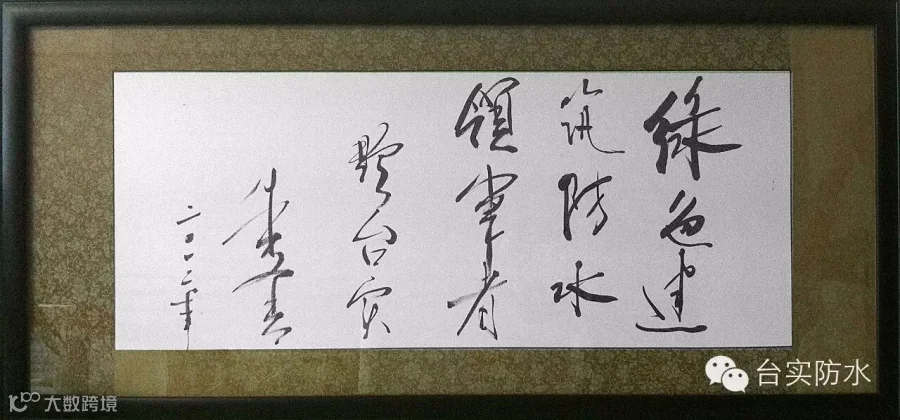 綠色建
筑防水
領军者
题台实
二〇一二年
台实防水
大数跨境